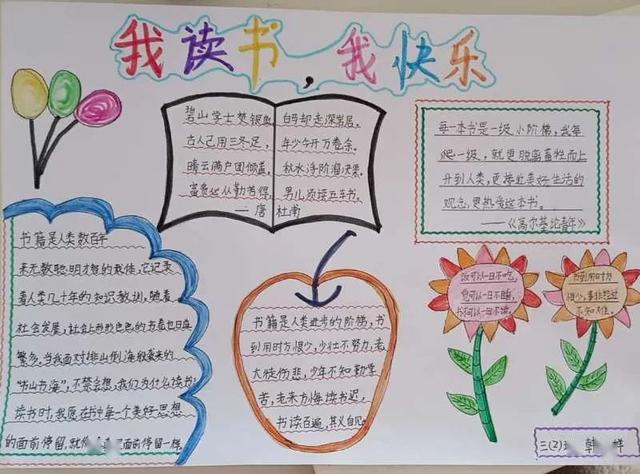 我读书，我快乐
碧山学士焚银鱼，白马却走深岩居。
古人己用三冬足，年少今开万卷余。
晴云满户团倾盖，秋水浮阶溜决渠。
富贵必从勤苦得，男儿须读五车书。
——唐 杜甫
每一本书是一级小阶梯，我每
爬一级，就更脱离畜牲而上
升到人类，更接近美好生活的
观念，更热爱这本书。
——《高尔基论青年》
书籍是人类数百年
来无数聪明才智的栽信，它记录
着人类几十年的知识教训，随着
社会发展，社会上形形色色的书看也日益
繁多，当我面对排山倒海般袭来的
"书山书海"，不禁会想，我们为什么读书
读书时，我愿在书中每一个美好思想
的面前停留，就
面前停留一样
书籍是人类进步的阶梯，书
到用时方恨少，少壮不努力，老
大徒伤悲，少年不知勤学
苦，老来方悔读书迟，
书读百遍，其义自见。
饭可以一日不吃，
觉可以一日不睡，
书不可以一日不读
书到用时方
恨少，事非经过
不知难。
三(2)班 韩